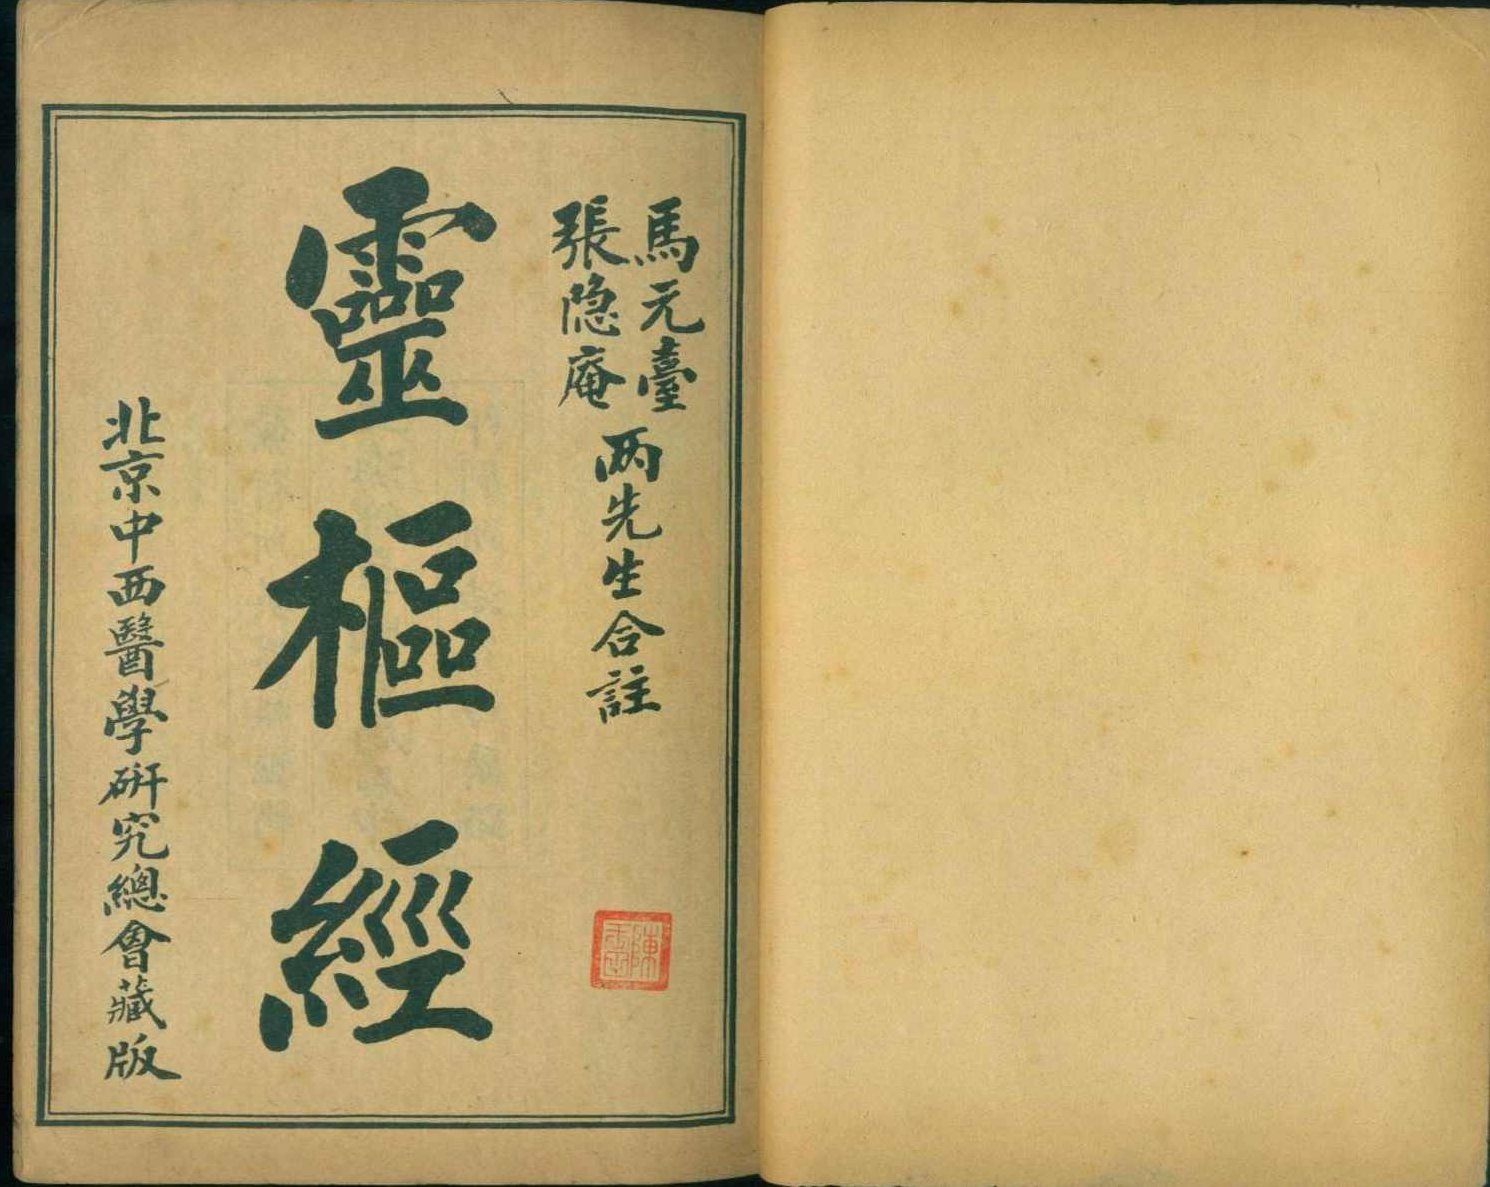 馬元臺
張隐庵
两先生合註
靈樞經
北京中西醫學研究總會藏版
陳